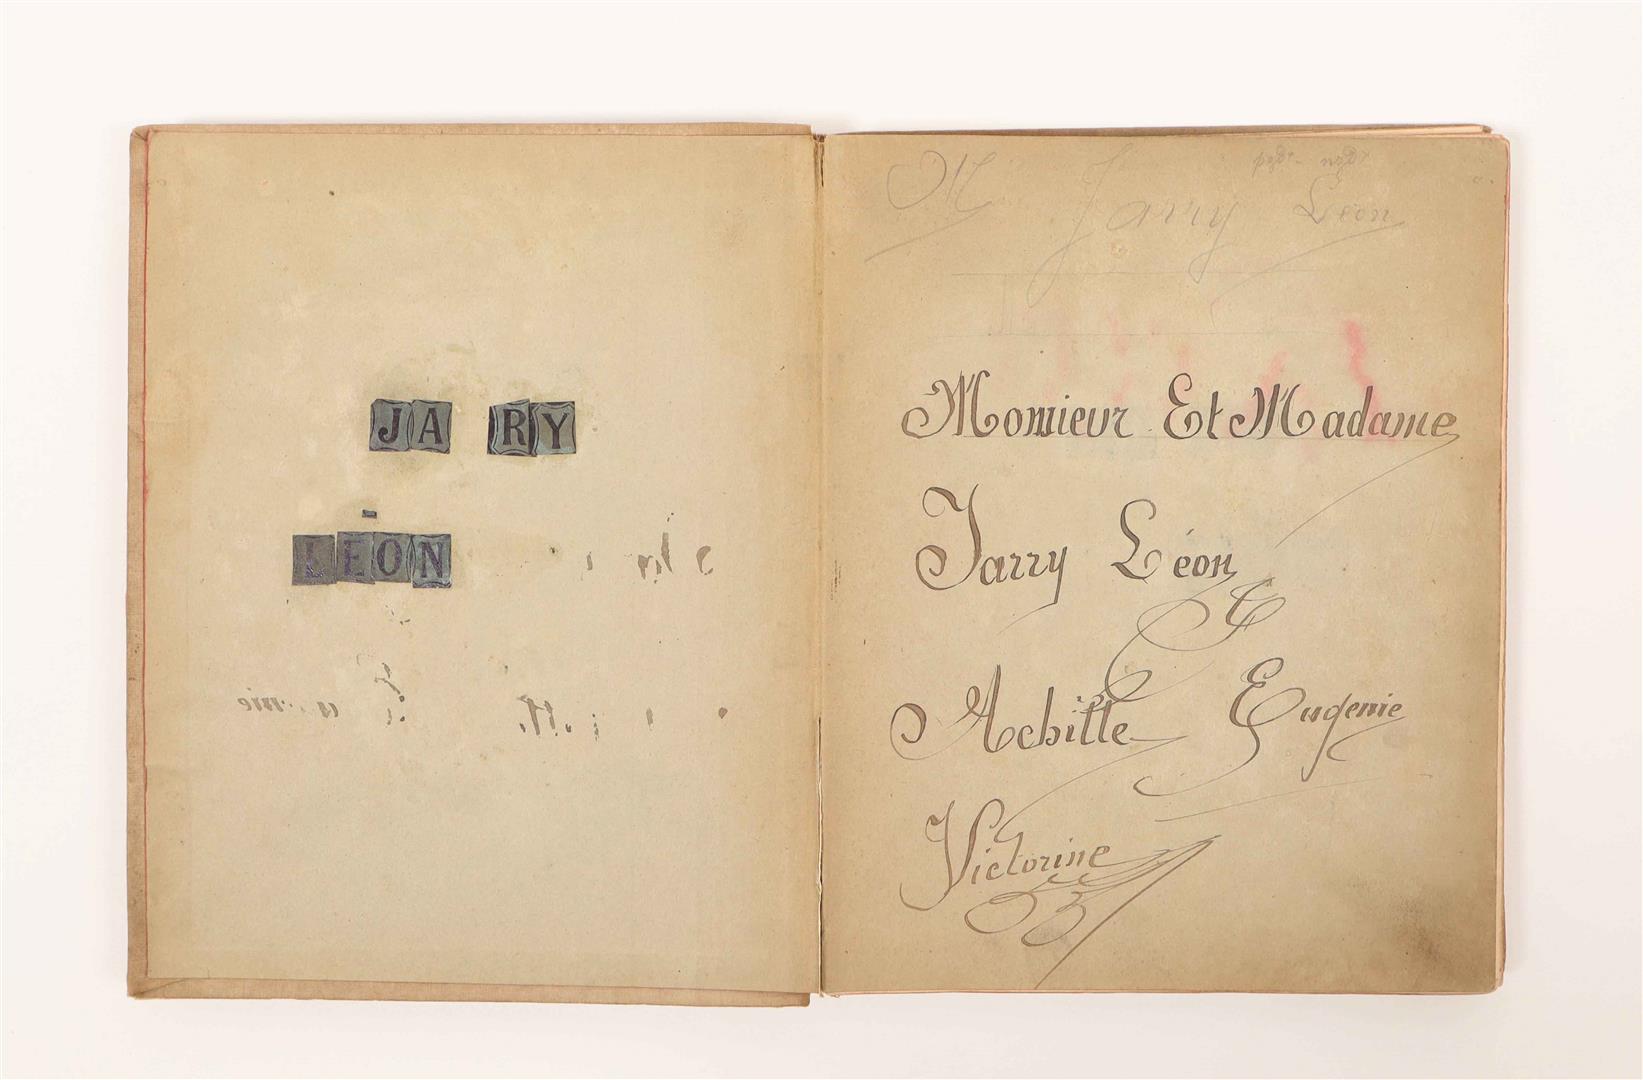 JA RY
LÉON
M Jarry Léon
Monsieur Et Madame
Jarry Léon
Achille Eugenie
Victorine